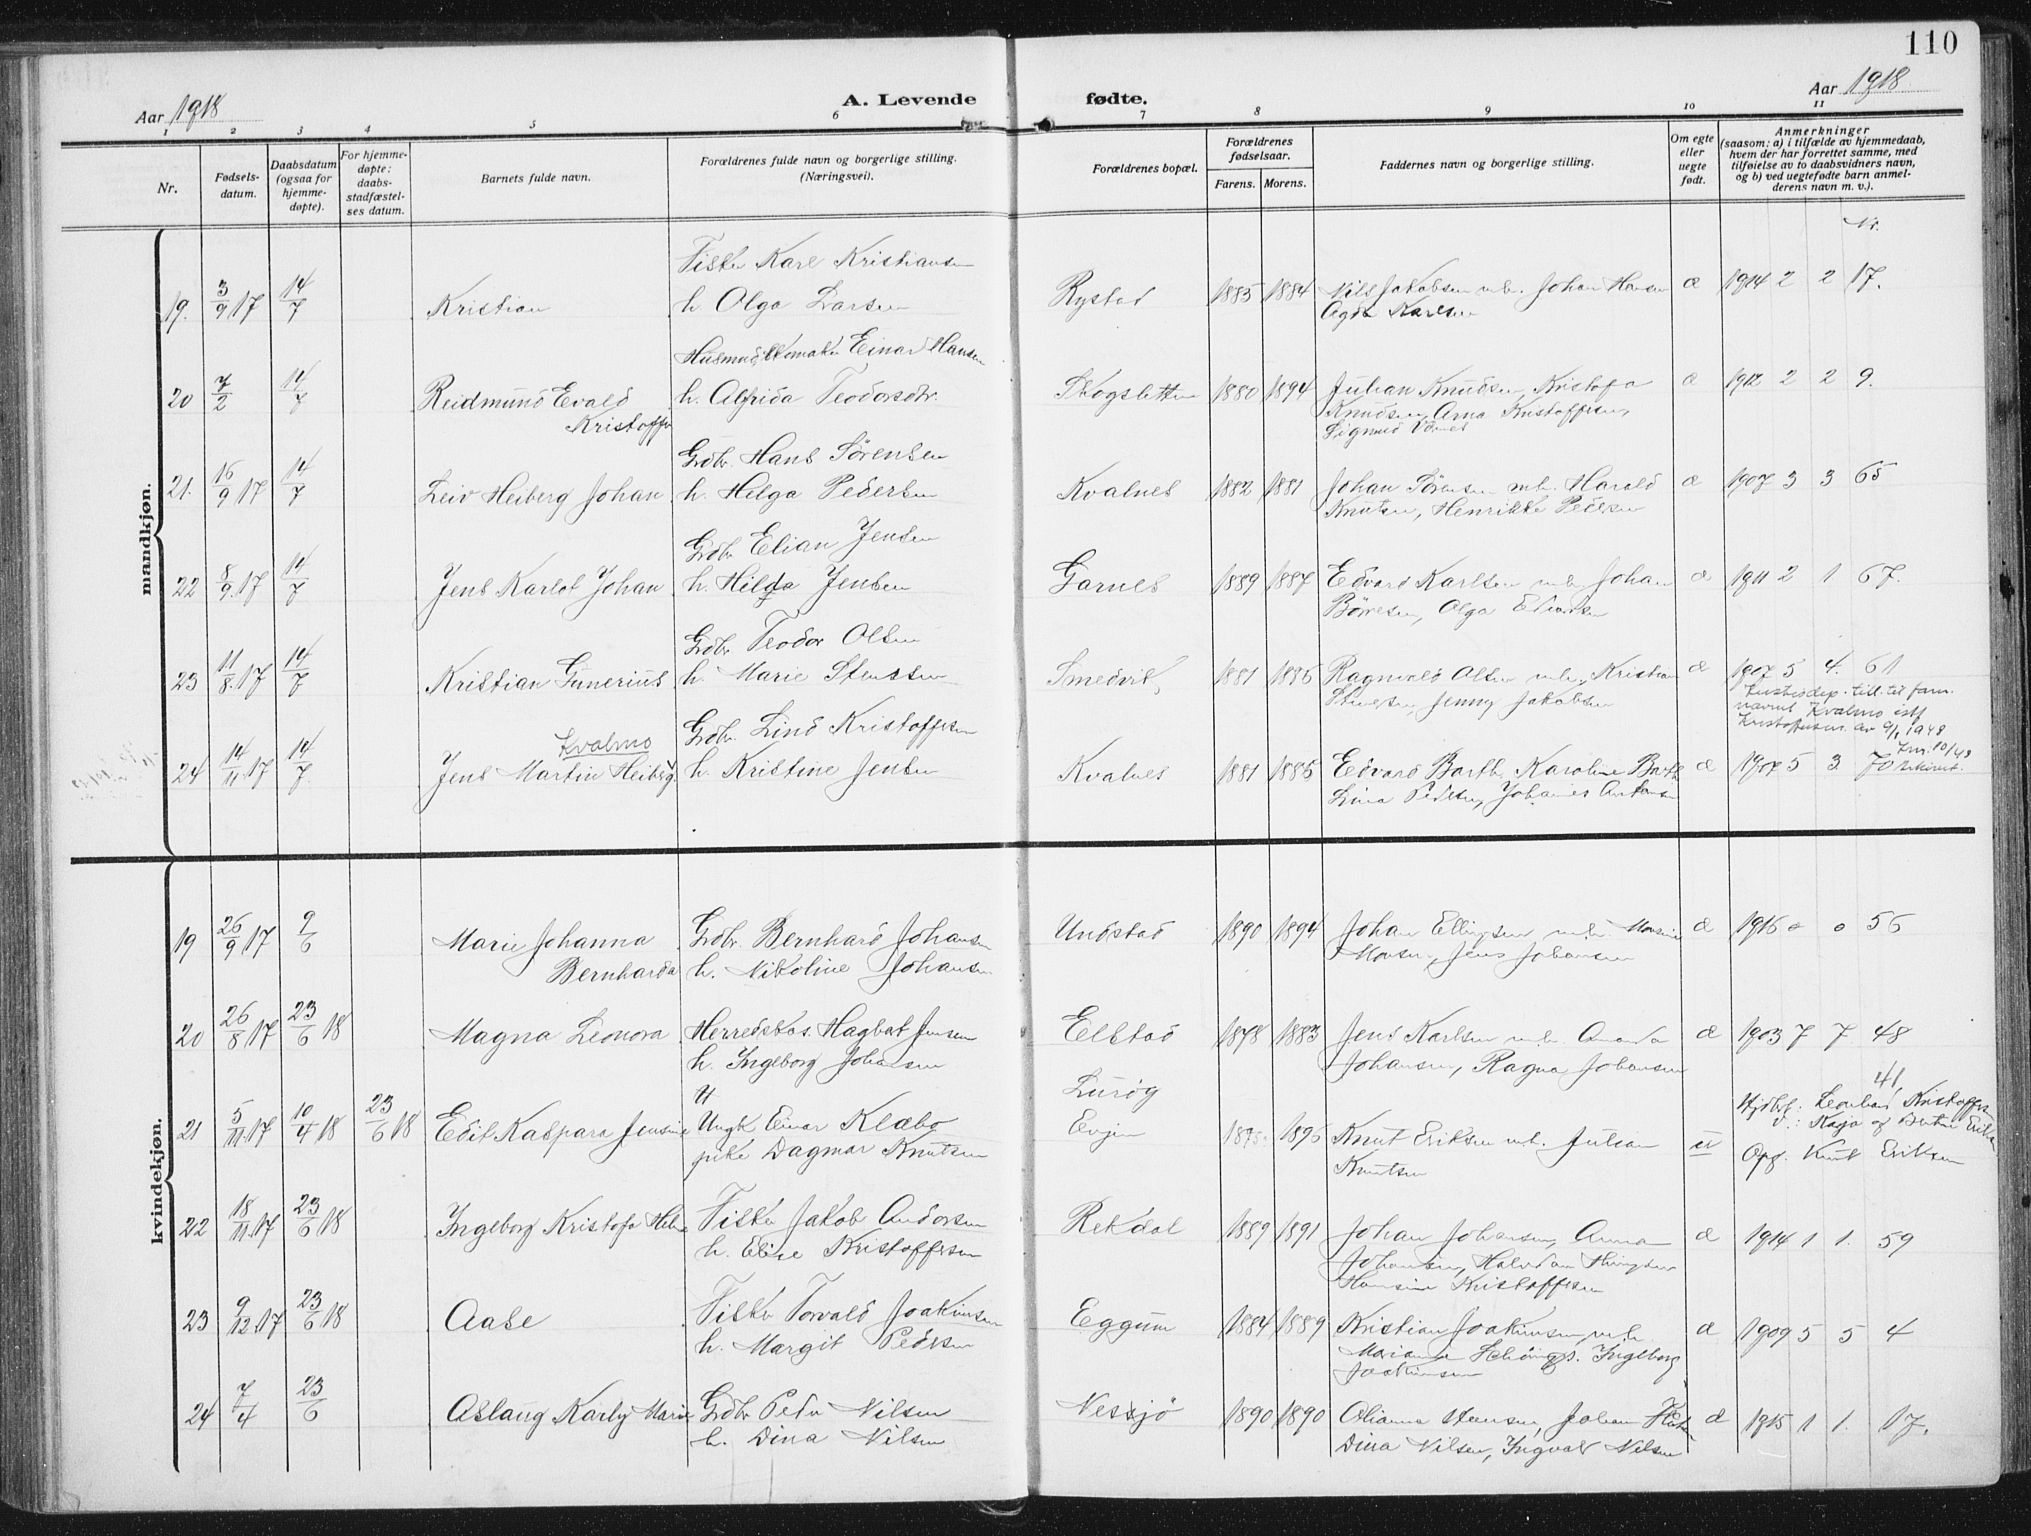 110
Aar 1918
A. Levende fødte.
Aar 1918
1 2 3 4 5 6 7 8 9 10 11
Nr.
Fødsels-
datum.
Daabsdatum
(ogsaa for
hjemme-
døpte).
For hjemme-
døpte:
daabs-
stadfæstel-
ses datum.
Barnets fulde navn.
Forældrenes fulde navn og borgerlige stilling.
(Næringsvei).
Forældrenes bopæl.
Forældrenes
fødselsaar.
Farens. Morens.
Faddernes navn og borgerlige stilling.
Om egte
eller
uegte
født.
Anmerkninger
(saasom: a) i tilfælde av hjemmedaab,
hvem der har forrettet samme, med
tilføielse av to daabsvidners navn,
og b) ved uegtefødte barn anmel-
derens navn m. v.).
Nr.
mandkjøn.
19. 3/9 17 14/7 Kristian
Fisker Karl Kristiansen
h. Olga Larsen
Rystad 1885 1884
Nils Jakobsen m.h. Johan Hansen
Agda Karlsen
æ 1914 2 2 17.
20 7/2 14/7 Reidmund Evald
Kristoffer
Einar Hansen
h. Alfrida Teodorsdtr.
Skogsletten 1880 1894
Julian Knudsen, Kristofa
Knudsen, Arna Kristoffersen,
æ 1912 2 2 9.
21. 16/9 17 14/7 Leiv Heiberg Johan
Grdbr. Hans Sørensen
h. Helga Pedersen
Kvalnes 1882 1881
Johan Sørensen m.h. Harald
Knutsen, Henrikke Pedersen
æ 1907 3 3 65
22 8/9.17 14/7 Jens Karlot Johan
Grdbr. Elian Jensen
h. Hilda Jensen
Garnes 1889 1887
Edvard Karlsen m.h. Johan
Børresen, Olga Edvardsen
æ 1911 2 1 67.
23 11/8.17 14/7 Kristian Gunerius
Grdbr. Teodor Olsen
h. Marie Stensen
Smedvik 1881 1886
Ragnvald Olsen m.h., Kristian
Stensen, Jenny Jakobsen
æ 1907 5 4. 61
Justisdep. till. til fam.
navnet Kvalmo istf
Kristoffersen av 9/1 1948
24 14/11.17 14/7. Jens Martin Heiberg
Kvalmo
Grdbr. Lind Kristoffersen
h. Kristine Jensen
Kvalnes 1881 1886
Edvard Barth, Karoline Barth
Lina Pedersen, Johannes Antonsen
æ 1907 5 3 70
kvindekjøn.
19 26/9 17 9/6 Marie Johanna
Bernharda
Grdbr. Bernhard Johansen
h. Nikoline Johansen
Undstad 1890 1894
Johan Ellingsen m.h. Monsine
Monsen, Jens Johansen
æ 1916 0 0 56
20 26/8 17 23/6 18 Magna Leonora
Herredskas. Hagbart Jensen
h. Ingeborg Johansen
Elstad 1878 1883
Jens Karlsen m.h. Amanda
Johansen, Ragna Johansen
æ 1903 7 7 48
21 5/11.17 10/4 18 23/6 18 Edit Kaspara Jensine
Ungk Einar Klæbo
pike Dagmar Knutsen
Lurøy
Evjen 1895 1896
Knut Eriksen m.h. Julian
Knutsen
u
41
Hjdbf.: Leonhard Kristoffersen
v.: Kaja og Bertine Eriksen
Opg. Knut Eriksen
22 18/11.17 23/6 18 Ingeborg Kristofa Helene
Fisker Jakob Andorsen
h. Elise Kristoffersen
Rekdal 1889 1891
Johan Johansen, Anna
Johansen, Halvdan
Hansine Kristoffersen
æ 1914 1 1. 59
23 9/12.17 23/6 18 Aase
Fisker Torvald Joakimsen
h. Margit Pedersen
Eggum 1884 1889
Kristian Joakimsen m.h.
Ingeborg
Joakimsen
æ 1909 5 5 4
24 7/4 23/6 Aslaug Karly Marie
Grdbr. Peder Nilsen
h. Dina Nilsen
Nessjø 1890 1890
Olianna Hansen, Johan
Dina Nilsen, Ingvald Nilsen
æ 1915 1 1. 17.